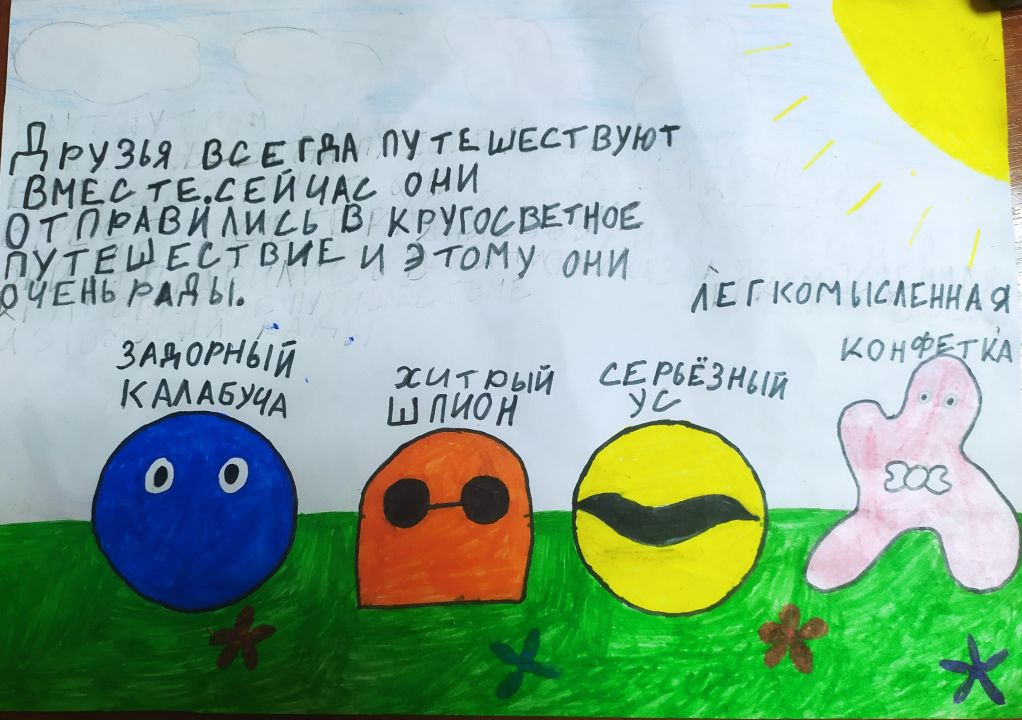 ДРУЗЬЯ ВСЕГДА ПУТЕШЕСТВУЮТ
ВМЕСТЕ.СЕЙЧАС ОНИ
ОТПРАВИЛИСЬ В КРУГОСВЕТНОЕ
ПУТЕШЕСТВИЕ И ЭТОМУ ОНИ
ОЧЕНЬ РАДЫ.
ЗАДОРНЫЙ
КАЛАБУЧА
ХИТРЫЙ
ШПИОН
СЕРЬЁЗНЫЙ
УС
ЛЕГКОМЫСЛЕННАЯ
КОНФЕТКА